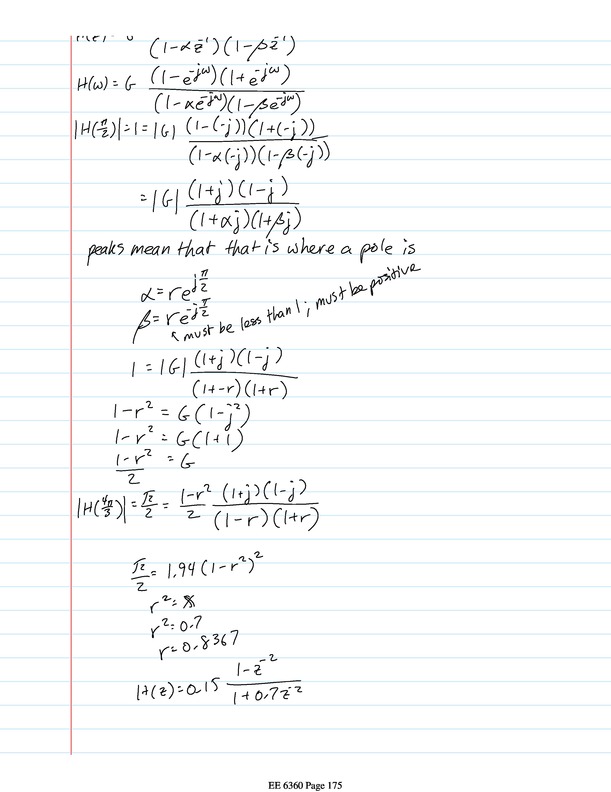 (1-αz⁻¹)(1-βz⁻¹)
H(ω) = G (1-e^-jω)(1+e^-jω) / (1-αe^-jω)(1-βe^-jω)
|H(π/2)| = 1 = |G| (1-(-j))(1+(-j)) / (1-α(-j))(1-β(-j))
= |G| (1+j)(1-j) / (1+αj)(1+βj)
peaks mean that that is where a pole is
α = re^jπ/2
β = re^-jπ/2
↖ must be less than 1; must be positive
1 = |G| (1+j)(1-j) / (1+-r)(1+r)
1-r² = G(1-j²)
1-r² = G(1+1)
1-r² / 2 = G
|H(4π/3)| = √2/2 = 1-r²/2 (1+j)(1-j) / (1-r)(1+r)
√2/2 = 1.94(1-r²)²
r² =
r² = 0.7
r = 0.8367
H(z) = 0.15 1-z⁻² / 1+0.7z⁻²
EE 6360 Page 175